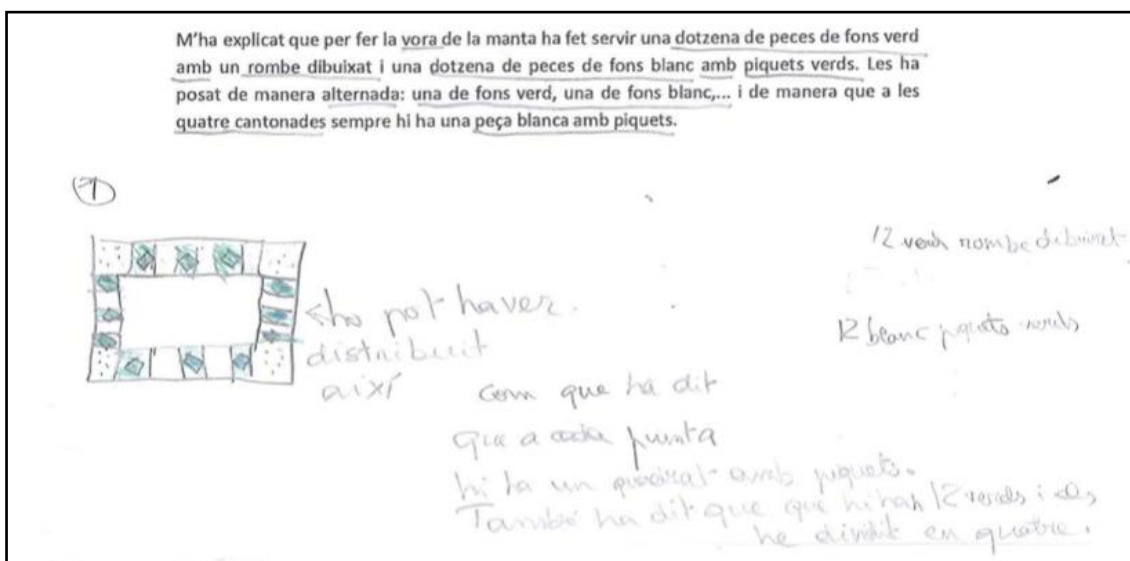 M'ha explicat que per fer la vora de la manta ha fet servir una dotzena de peces de fons verd
amb un rombe dibuixat i una dotzena de peces de fons blanc amb piquets verds. Les ha
posat de manera alternada: una de fons verd, una de fons blanc,... i de manera que a les
quatre cantonades sempre hi ha una peça blanca amb piquets.
1
12 verds rombe dibuixat
ho pot haver
distribuit
així
12 blanc piquets verds
com que ha dit
que a cada punta
hi ha un quadrat amb piquets.
També ha dit que que hi han 12 verds i els
he dividit en quatre.